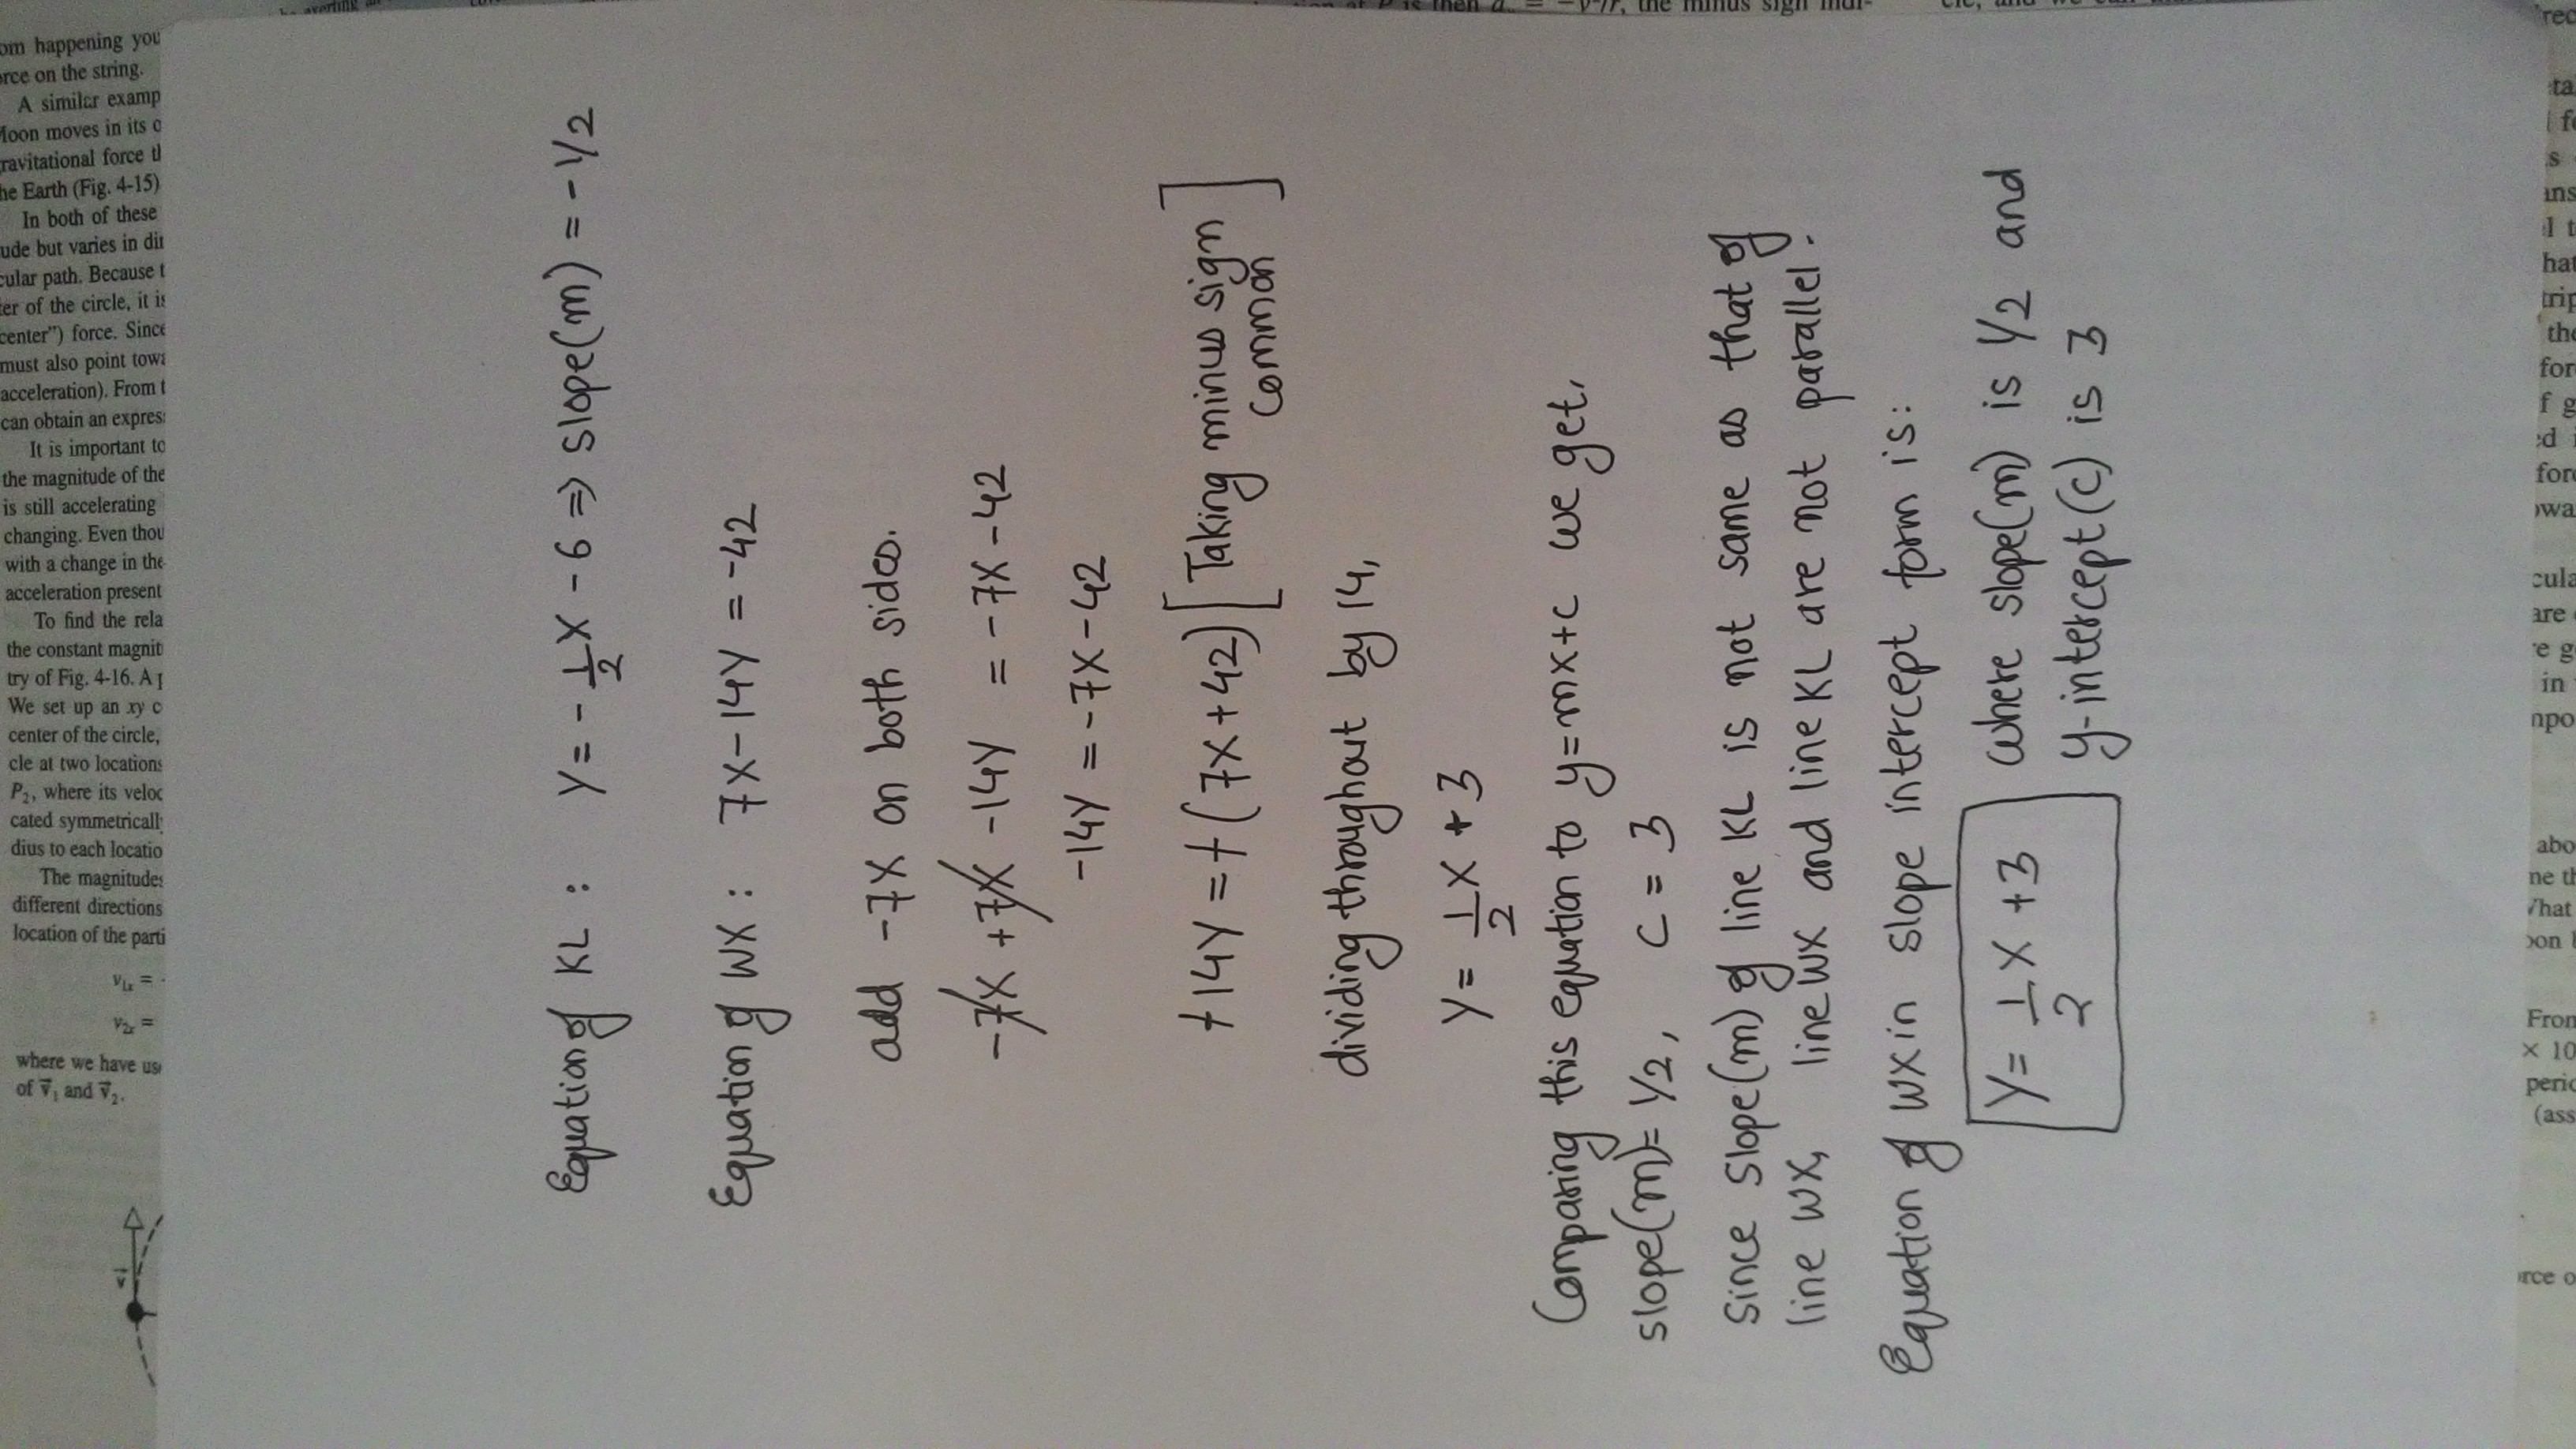 Equation of KL : Y = -1/2 X - 6 ⇒ slope(m) = -1/2
Equation of WX : 7X - 14Y = -42
add -7X on both sides.
-7X + 7X - 14Y = -7X - 42
-14Y = -7X - 42
+14Y = +(7X + 42) [Taking minus sign common]
dividing throughout by 14,
Y = 1/2 X + 3
Comparing this equation to y=mx+c we get,
slope(m) = 1/2, C = 3
Since slope(m) of line KL is not same as that of
line WX, line WX and line KL are not parallel.
Equation of WX in slope intercept form is:
Y = 1/2 X + 3 where slope(m) is 1/2 and
y-intercept(c) is 3
om happening you
orce on the string.
A similar examp
Moon moves in its o
ravitational force th
he Earth (Fig. 4-15)
In both of these
ude but varies in dir
cular path. Because t
ter of the circle, it is
center") force. Since
must also point towa
acceleration). From t
can obtain an express
It is important to
the magnitude of the
is still accelerating
changing. Even thou
with a change in the
acceleration present
To find the rela
the constant magnit
try of Fig. 4-16. A p
We set up an xy c
center of the circle,
cle at two locations
P2, where its veloc
cated symmetrically
dius to each locatio
The magnitudes
different directions
location of the parti
v1x = -
v2x =
where we have us
of v⃗1 and v⃗2.
v⃗
the minus sign indi-